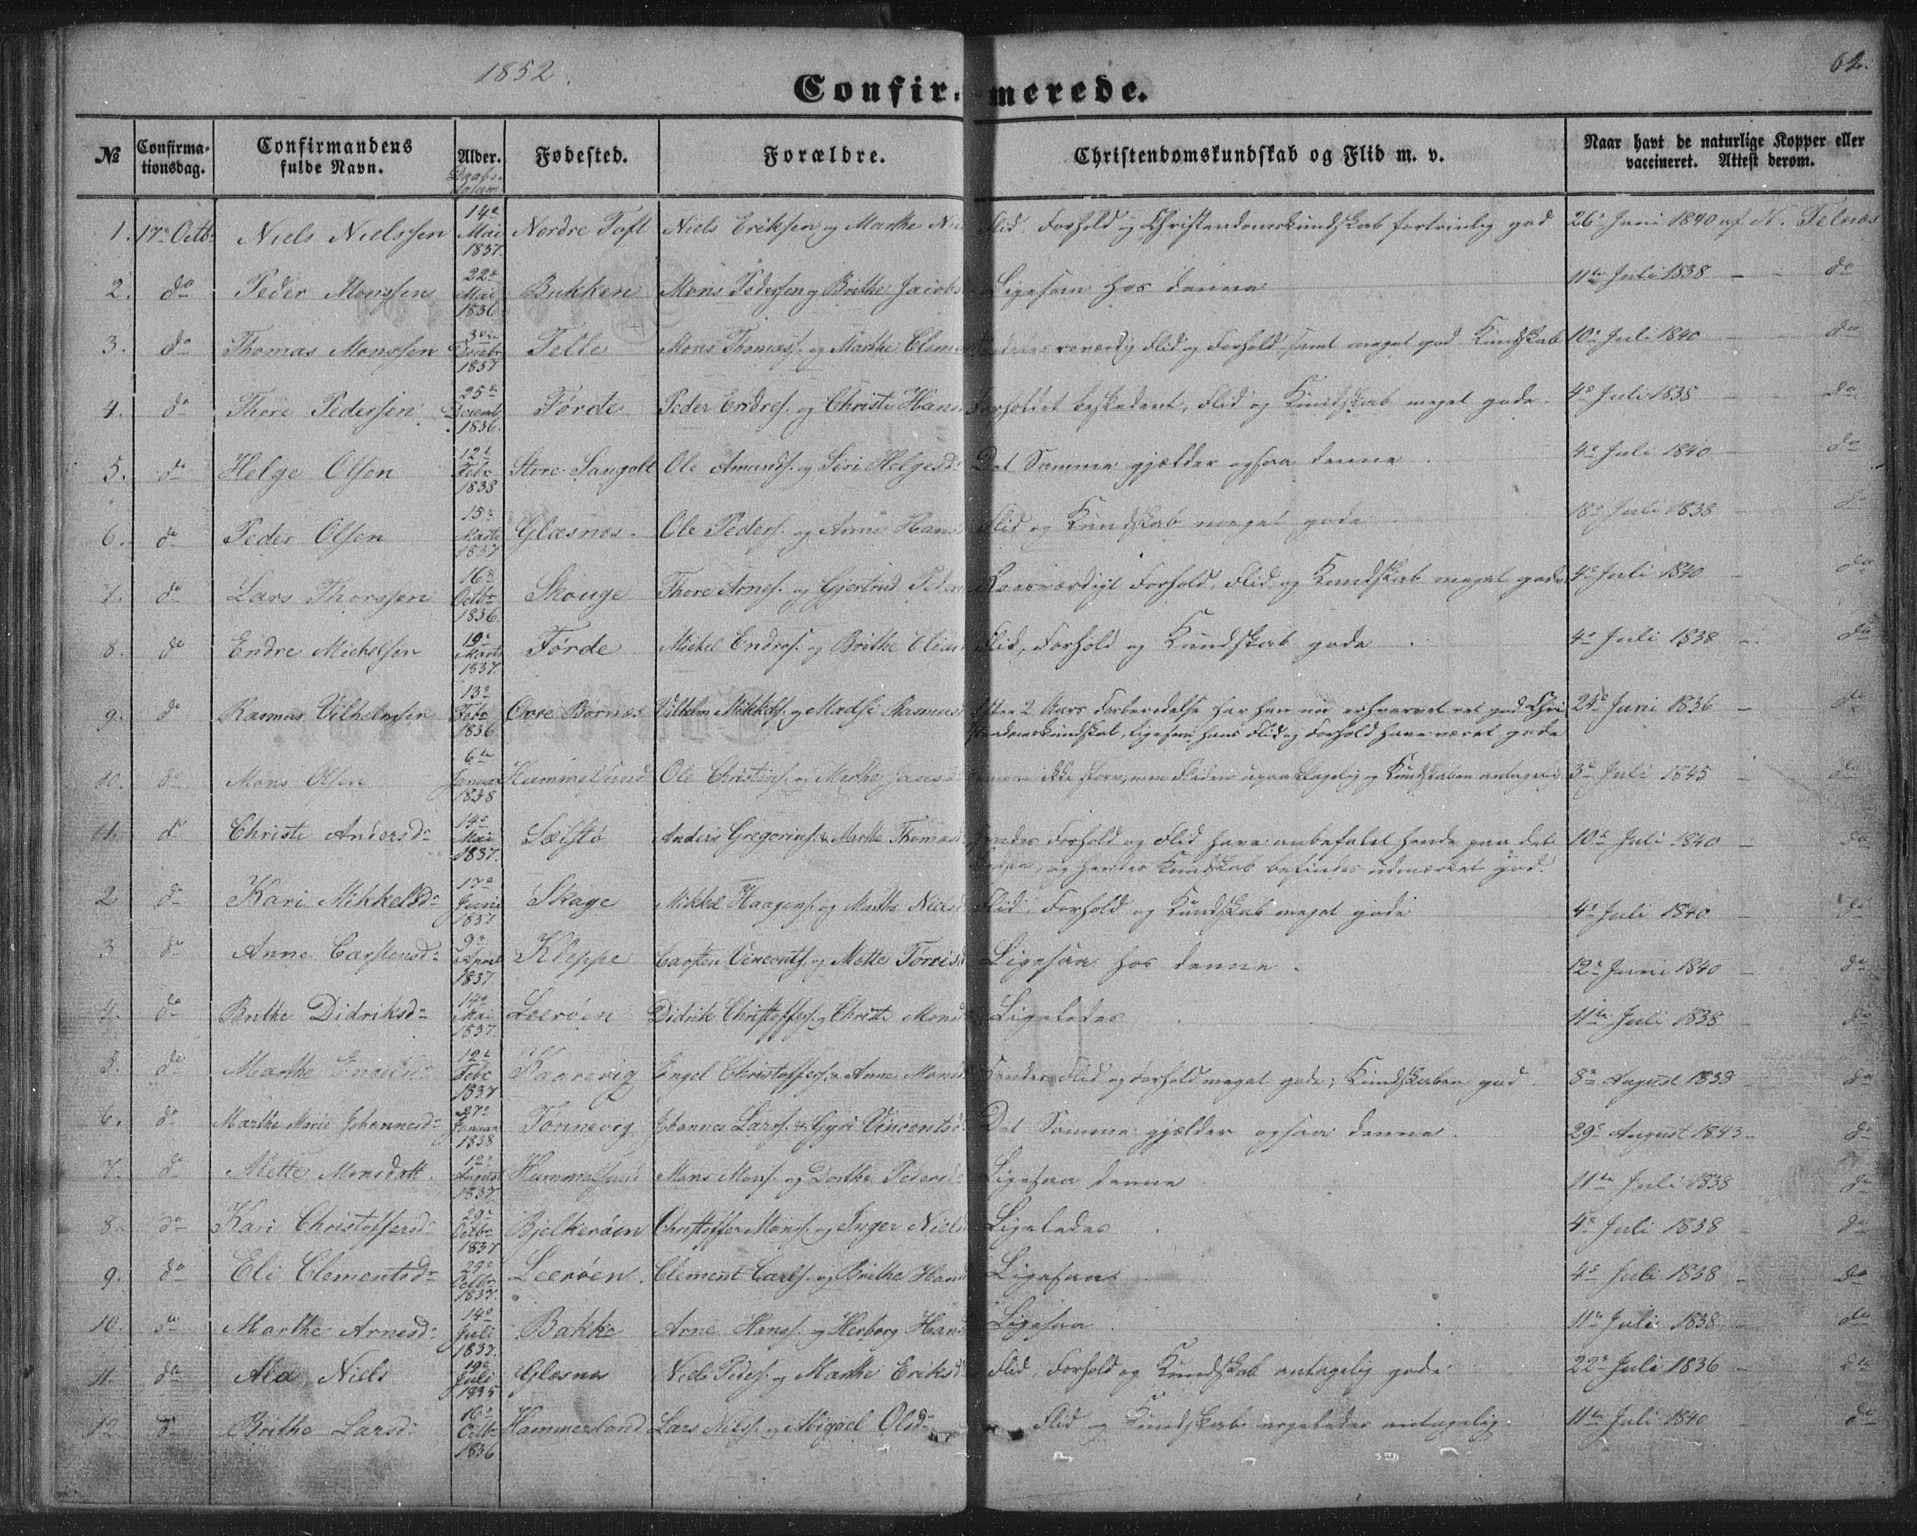 1852.
62.
Confirmerede.
№ Confirmationsdag. Confirmandens fulde Navn. Alder. Daabsdatum Fødested. Forældre. Christendomskundskab og Flid m. v. Naar havt de naturlige Kopper eller vaccineret. Attest derom.
1. 17de Octbr Niels Nielssen 14de Mai 1837. Nordre Toft Niels Eriksen og Marthe Flid, Forhold og Christendomskundskab fortrinlig god 26de Juni 1840 af N. Telnæs
2. do Peder Monssen 22de Mai 1836 Bukken Mons Pedersen og Brithe Jacobs Ligesaa hos denne 11te Juli 1838 - - do
3. do Thomas Monssen Decbr 1837 Telle Mons Thomass. og Marthe Clem Flid og Forhold, samt meget god Kundskab 10de Juli 1840 do
4. do Thore Pederssen 25de Decemb 1836. Førde Peder Endres. og Christi Hans Forholdet beskedent, Flid og Kundskab meget gode. 4de Juli 1838 - do
5. do Helge Olsen 12te Febr 1838 Store Sangolt Ole Amunds. og Siri Helgesdr Det Samme gjælder ogsaa denne 4de Juli 1840 do
6. do Peder Olsen 15de Marts 1837 Glæsnæs. Ole Peders. og Anne Hans Flid og Kundskab meget gode 18de Juli 1838 - do
7. do Lars Thorssen 16de Octbr 1836. Skouge Thore Arnes. og Gjertrud Peders Roesværdigt Forhold, Flid og Kundskab meget gode 4de Juli 1840 - do
8. do Endre Michelsen 19de Marts 1837. Førde Michel Endres. og Brithe Elias Flid, Forhold og Kundskab gode 4de Juli 1838 - do
9. do Rasmus Vilhelmsen 13de Febr 1836 Øvre Bornæs Vilhelm Mikkels. og Madsi Rasmus Efter 2 Aars Forberedelse har han nu erhvervet ret god Chri
stendomskundskab, ligesom hans Flid og Forhold have været gode 24de Juni 1836 - do
10. do Mons Olsen 6te Januar 1838 Hummelsund Ole Christens. og Marthe Jansd ikke store, men Fliden upaaklagelig og Kundskaben antagelig 3de Juli 1845 - do
11. do Christi Andersdr 14de Mai 1837. Sælstø Anders Gregorius. & Marthe Thomas Hendes Forhold og Flid have anbefalet hende paa det
Bedste, og hendes Kundskab befindes udmærket god. 10de Juli 1840 - do
2 do Kari Mikkelsdr 17de Juni 1837 Skage Mikkel Haagens. og Marthe Nielsd Flid, Forhold og Kundskab meget gode 4de Juli 1840 - do
3 do Anne Carstensdr 9de April 1837. Kleppe Carsten Vincents. og Mette Torrisd Ligesaa hos denne. 12te Juni 1840 - do
4. do Brithe Didriksdr 14de Mai 1837. Leerøen Didrik Christoffers. og Christi Monsd Ligeledes 11te Juli 1838 - do
5. do Marthe Engelsdr 12te Febr 1837 Kaarevig Engel Christoffers. & Anne Monsd Hendes Flid og Forhold meget gode; Kundskaben god 8de August 1838 - do
6. do Marthe Marie Johannesdr 27de Januar 1838 Tønnevig Johannes Larss. & Gyri Vincentsdr Det Samme gjælder ogsaa denne. 29de August 1843 - do
7. do Mette Monsdatt. 12te August 1837. Hummelsund Mons Mons. og Dorthe Pedersdr Ligesaa denne 11te Juli 1838 - do
8. do Kari Christoffersdr 29de Octbr 1837 Bjelkerøen Christoffer Mons. og Inger Niels Ligeledes 4de Juli 1838 - do
9. do Eli Clementsdr 29de Octbr 1837. Leerøen. Clement Carls. og Brithe Hansd Ligesaa 4de Juli 1838 - do
10. do Marthe Arnesdr 14de Juli 1837. Bakke Arne Hans. og Herborg Hansd Ligesaa 11te Juli 1838 - do
11. do Ale Niels 19de Juli 1835 Glæsnes Niels Peders. og Marthe Eriksd Flid, Forhold og Kundskab antagelig gode 22de Juli 1836 - do
12 do Brithe Larsdr 16de Octbr 1836 Hammersland Lars Nils. og Abigael Olsdr Flid og Kundskab nogenledes antagelig. 11te Juli 1840 - do